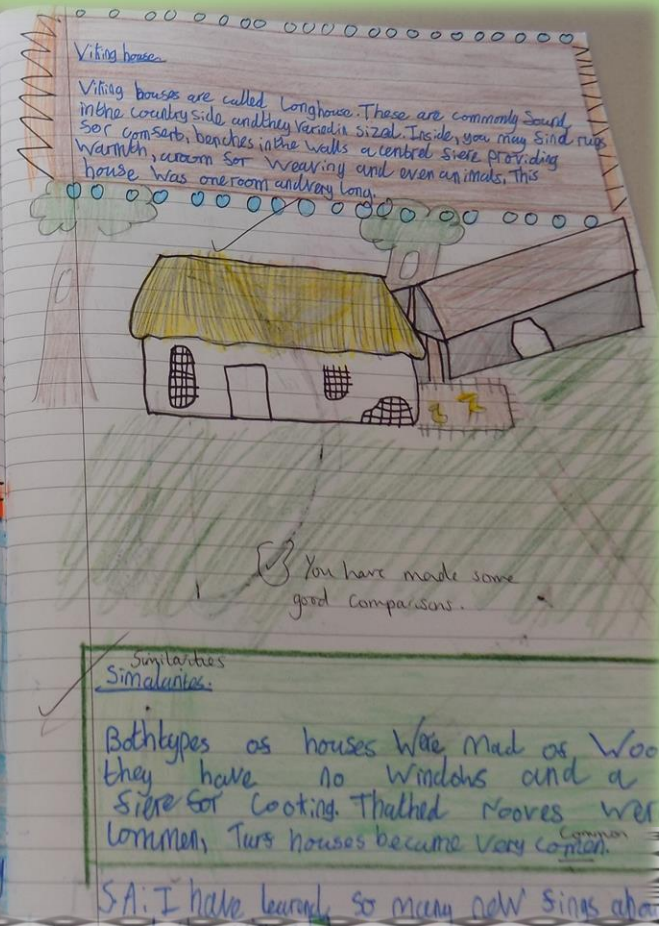 Viking house
Viking houses are called Longhouse. These are commonly Sound
in the country side and they varied in sizal. Inside, you may Sind rugs
Sor comsert, benches in the walls a central Siere providing
warmth, a room Sor weaving and even animals, This
house was one room and very long.
You have made some
good comparisons.
Similarities
Simalarites.
Both types os houses Were mad os Woo
they have no windohs and a
Siere Sor Cooting. Thathed rooves wer
Commen, Turs houses became very comen.
Common
S.A: I have learnd so many new Sings abou